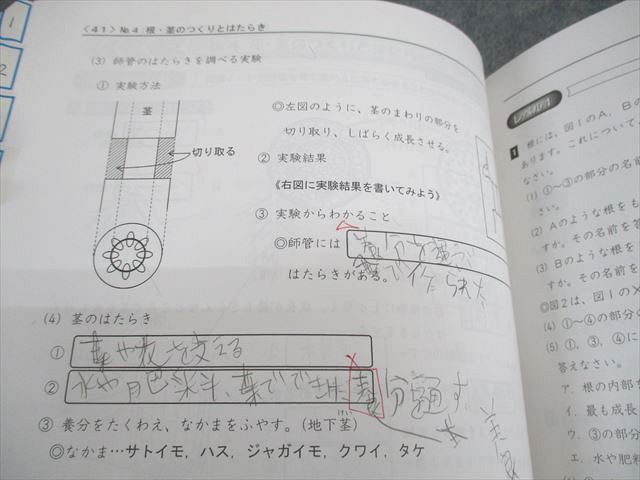 1
2
〈41〉№4：根・茎のつくりとはたらき
(3) 師管のはたらきを調べる実験
① 実験方法
茎
切り取る
◎左図のように、茎のまわりの部分を
切り取り、しばらく成長させる。
② 実験結果
《右図に実験結果を書いてみよう》
③ 実験からわかること
◎師管には
はたらきがある。
(4) 茎のはたらき
① 葉や花を支える
② 水や肥料、葉でできた養分 通す。
③ 養分をたくわえ、なかまをふやす。(地下茎)
けい
◎なかま…サトイモ, ハス, ジャガイモ, クワイ, タケ
レベル1
1 根には、図1のA、Bの
あります。これについて、
なさい。
(1) ①～③の部分の名前
さい。
(2) Aのような根をも
すか。その名前を答
(3) Bのような根を
すか。その名前
◎図2は、図1の
(4) ①～④の部分の
(5) ①、③、④に
答えなさい。
ア. 根の内部
イ. 最も成長
ウ. ③の部分
エ. 水や肥料